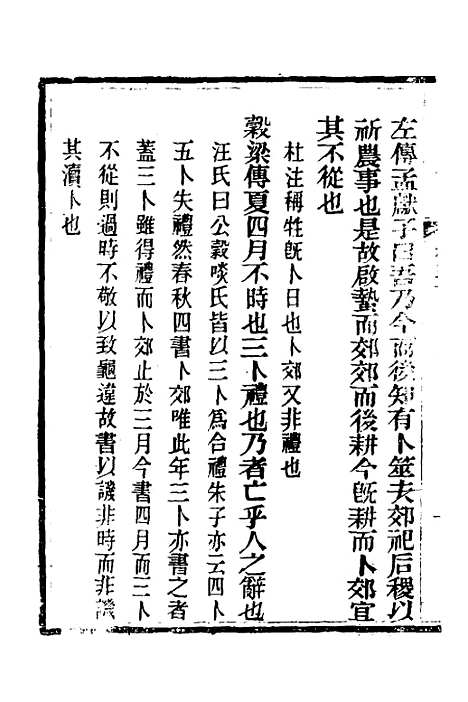 左傳孟獻子曰吾乃今而後知有卜筮夫郊祀后稷以
祈農事也是故啟蟄而郊郊而後耕今旣耕而卜郊宜
其不從也
杜注稱牲旣卜日也卜郊又非禮也
穀梁傳夏四月不時也三卜禮也乃者亡乎人之辭也
汪氏曰公穀啖氏皆以三卜爲合禮朱子亦云四卜
五卜失禮然春秋四書卜郊唯此年三卜亦書之者
蓋三卜雖得禮而卜郊止於三月今書四月而三卜
不從則過時不敬以致龜違故書以譏非時而非譏
其瀆卜也